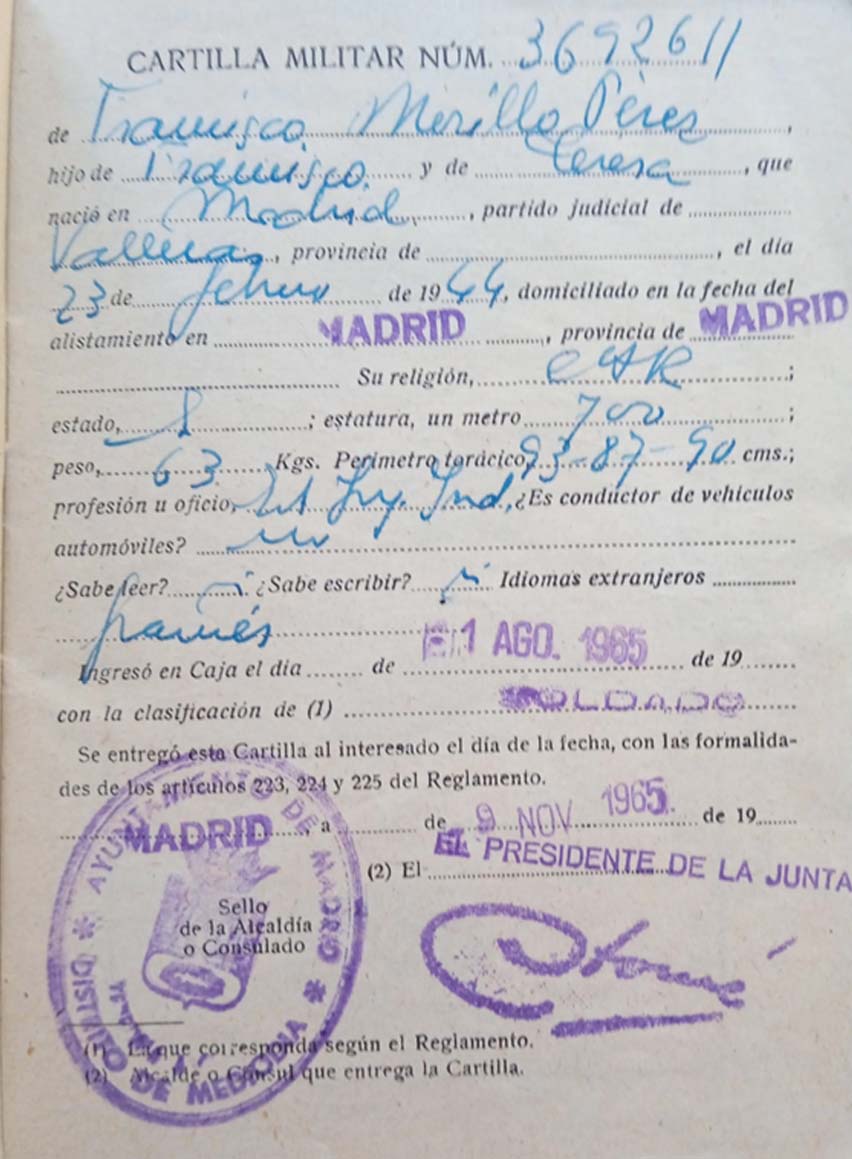 CARTILLA MILITAR NÚM. 3692611
de Francisco Morillo Pérez,
hijo de Francisco y de Teresa, que
nació en Madrid, partido judicial de
Vallecas, provincia de, el día
23 de febrero de 1944, domiciliado en la fecha del
alistamiento en MADRID, provincia de MADRID
Su religión, CAR;
estado, S; estatura, un metro 700;
peso, 63 Kgs. Perímetro torácico, 93-87-90 cms.;
profesión u oficio, Est Ing. Ind, ¿Es conductor de vehículos
automóviles? no
¿Sabe leer? si ¿Sabe escribir? si Idiomas extranjeros
francés
Ingresó en Caja el día de 1 AGO. 1965 de 19
con la clasificación de (1) SOLDADO
Se entregó esta Cartilla al interesado el día de la fecha, con las formalida-
des de los artículos 223, 224 y 225 del Reglamento.
MADRID, a de 9 NOV 1965. de 19
(2) El EL PRESIDENTE DE LA JUNTA
Sello
de la Alcaldía
o Consulado
AYUNTAMIENTO DE MADRID
DISTRITO DE MEDIODIA
(1) La que corresponda según el Reglamento.
(2) Alcalde o Cónsul que entrega la Cartilla.